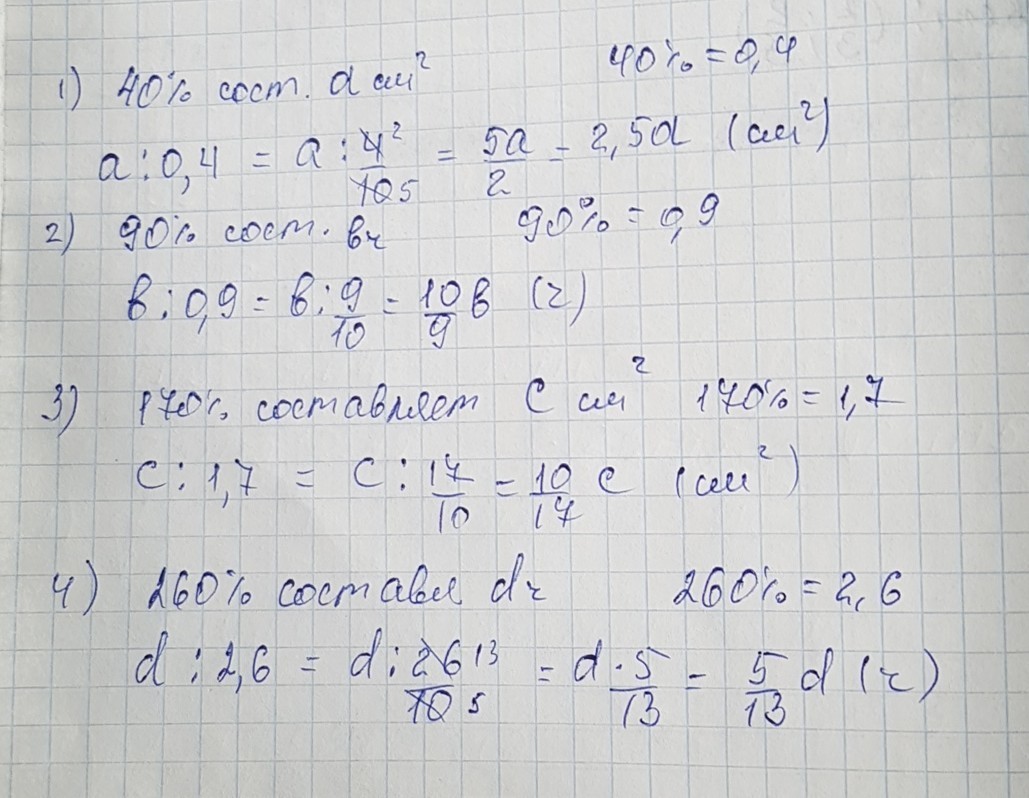 1) 40% сост. a см² 40% = 0,4
a : 0,4 = a : 4²/10 5 = 5a/2 = 2,5a (см²)
2) 90% сост. в г 90% = 0,9
в : 0,9 = в : 9/10 = 10/9 в (г)
3) 170% составляет C см² 170% = 1,7
C : 1,7 = C : 17/10 = 10/17 C (см²)
4) 260% составл d г 260% = 2,6
d : 2,6 = d : 26 13/10 5 = d · 5/13 = 5/13 d (г)